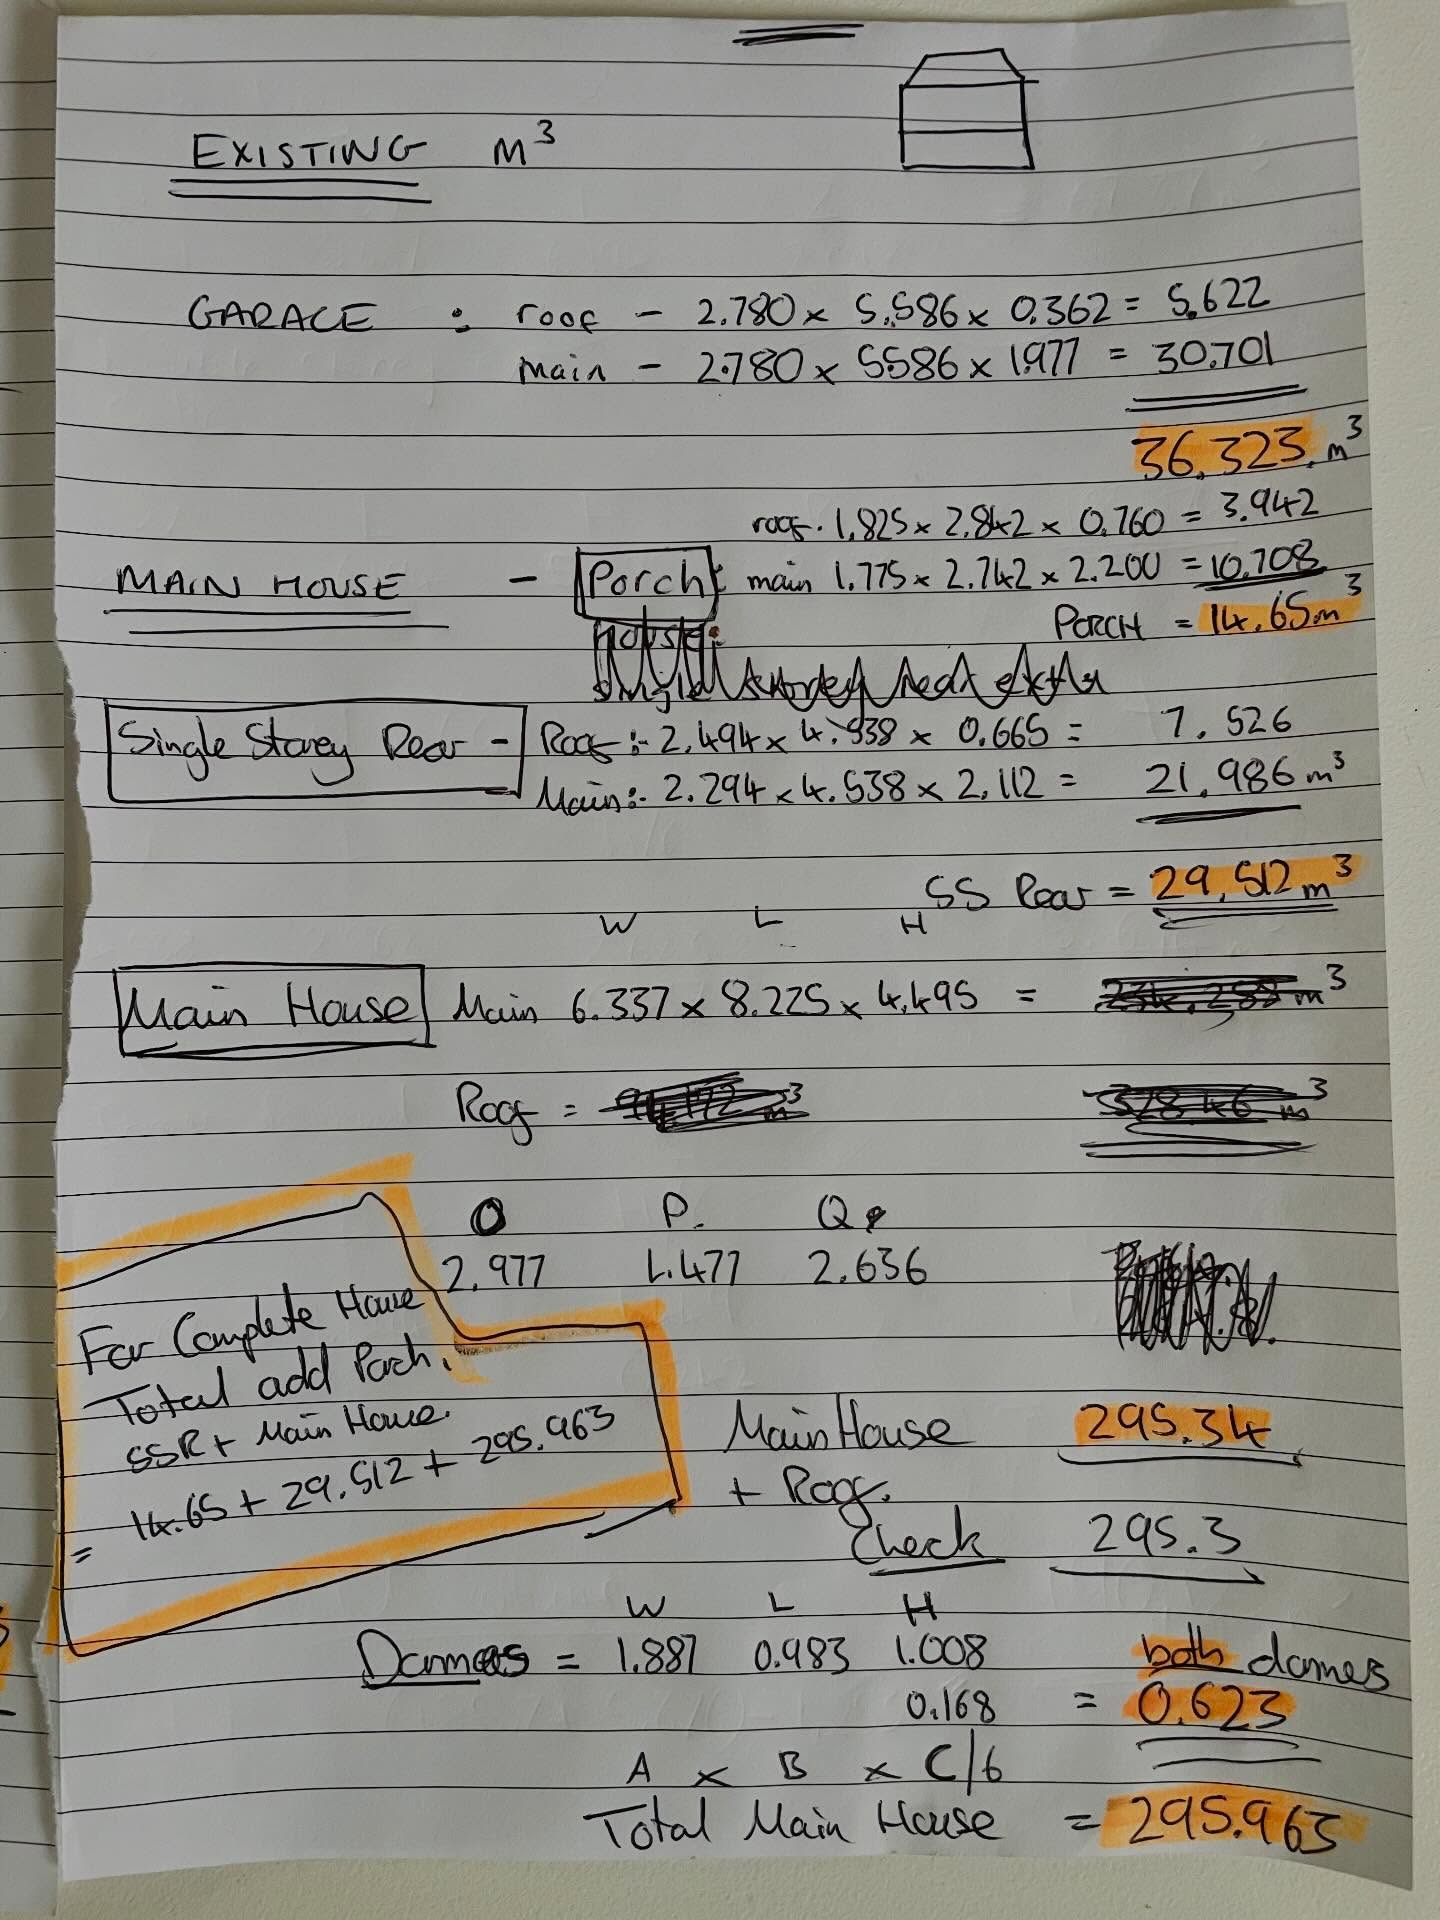 EXISTING M³
GARAGE : roof - 2.780 x 5.586 x 0.362 = 5.622
main - 2.780 x 5.586 x 1.977 = 30.701
36.323 m³
roof. 1.825 x 2.842 x 0.760 = 3.942
MAIN HOUSE - Porch: main 1.775 x 2.742 x 2.200 = 10.708
PORCH = 14.65m³
house:
single storey rear extn
Single Storey Rear - Roof :- 2.494 x 4.538 x 0.665 = 7.526
Main :- 2.294 x 4.538 x 2.112 = 21.986 m³
SS Rear = 29.512 m³
W L H
Main House Main 6.337 x 8.225 x 4.495 = m³
Roof = m³ m³
O P. Q.
2.977 1.477 2.636
For Complete House
Total add Porch.
SSR + Main House.
= 14.65 + 29.512 + 295.963
Main House 295.34
+ Roof.
Check 295.3
W L H
Dormers = 1.887 0.983 1.008 both domes
0.168 = 0.623
A x B x C/6
Total Main House = 295.963